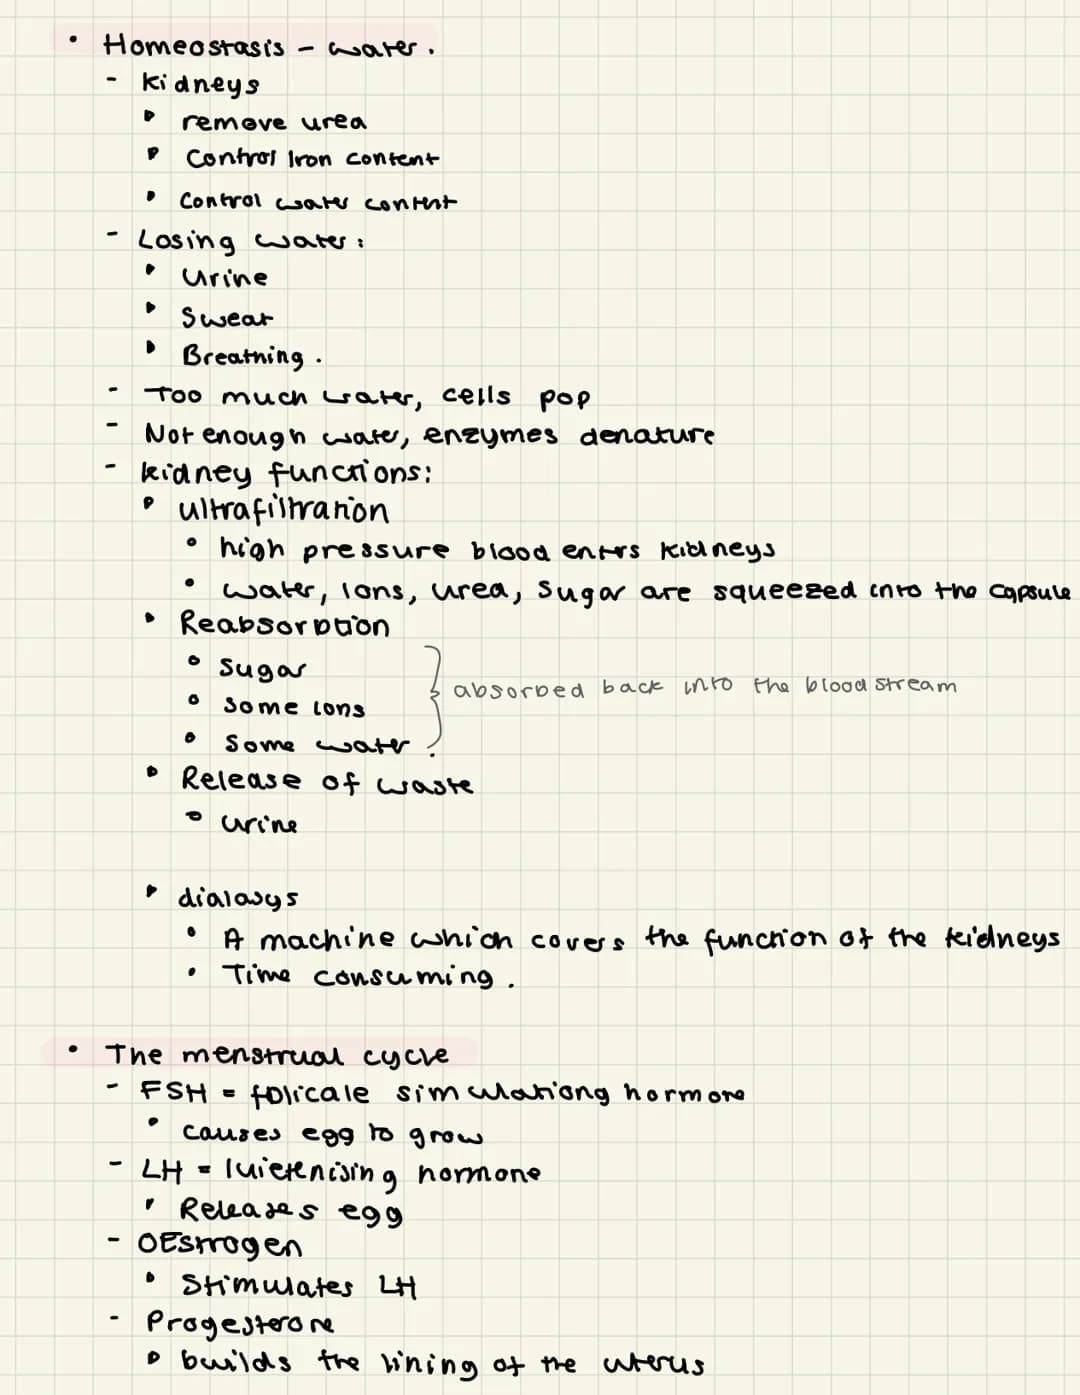 • Homeostasis - water.
- kidneys
remove urea
Control Iron content
Control water content
- Losing water:
Urine
Sweat
Breathing.
- Too much water, cells pop
- Not enough water, enzymes denature
- kidney functions:
ultrafiltration
high pressure blood enters kidneys
water, ions, urea, sugar are squeezed into the capsule
Reabsorption
sugar
some ions
absorbed back into the blood stream
some water
Release of waste
urine
dialasys
A machine which covers the function of the kidneys
Time consuming.
• The menstrual cycle
- FSH = folicale simulationg hormone
causes egg to grow
- LH = luietenising hormone
Releases egg
- OEstrogen
Stimulates LH
- Progesterone
builds the lining of the uterus